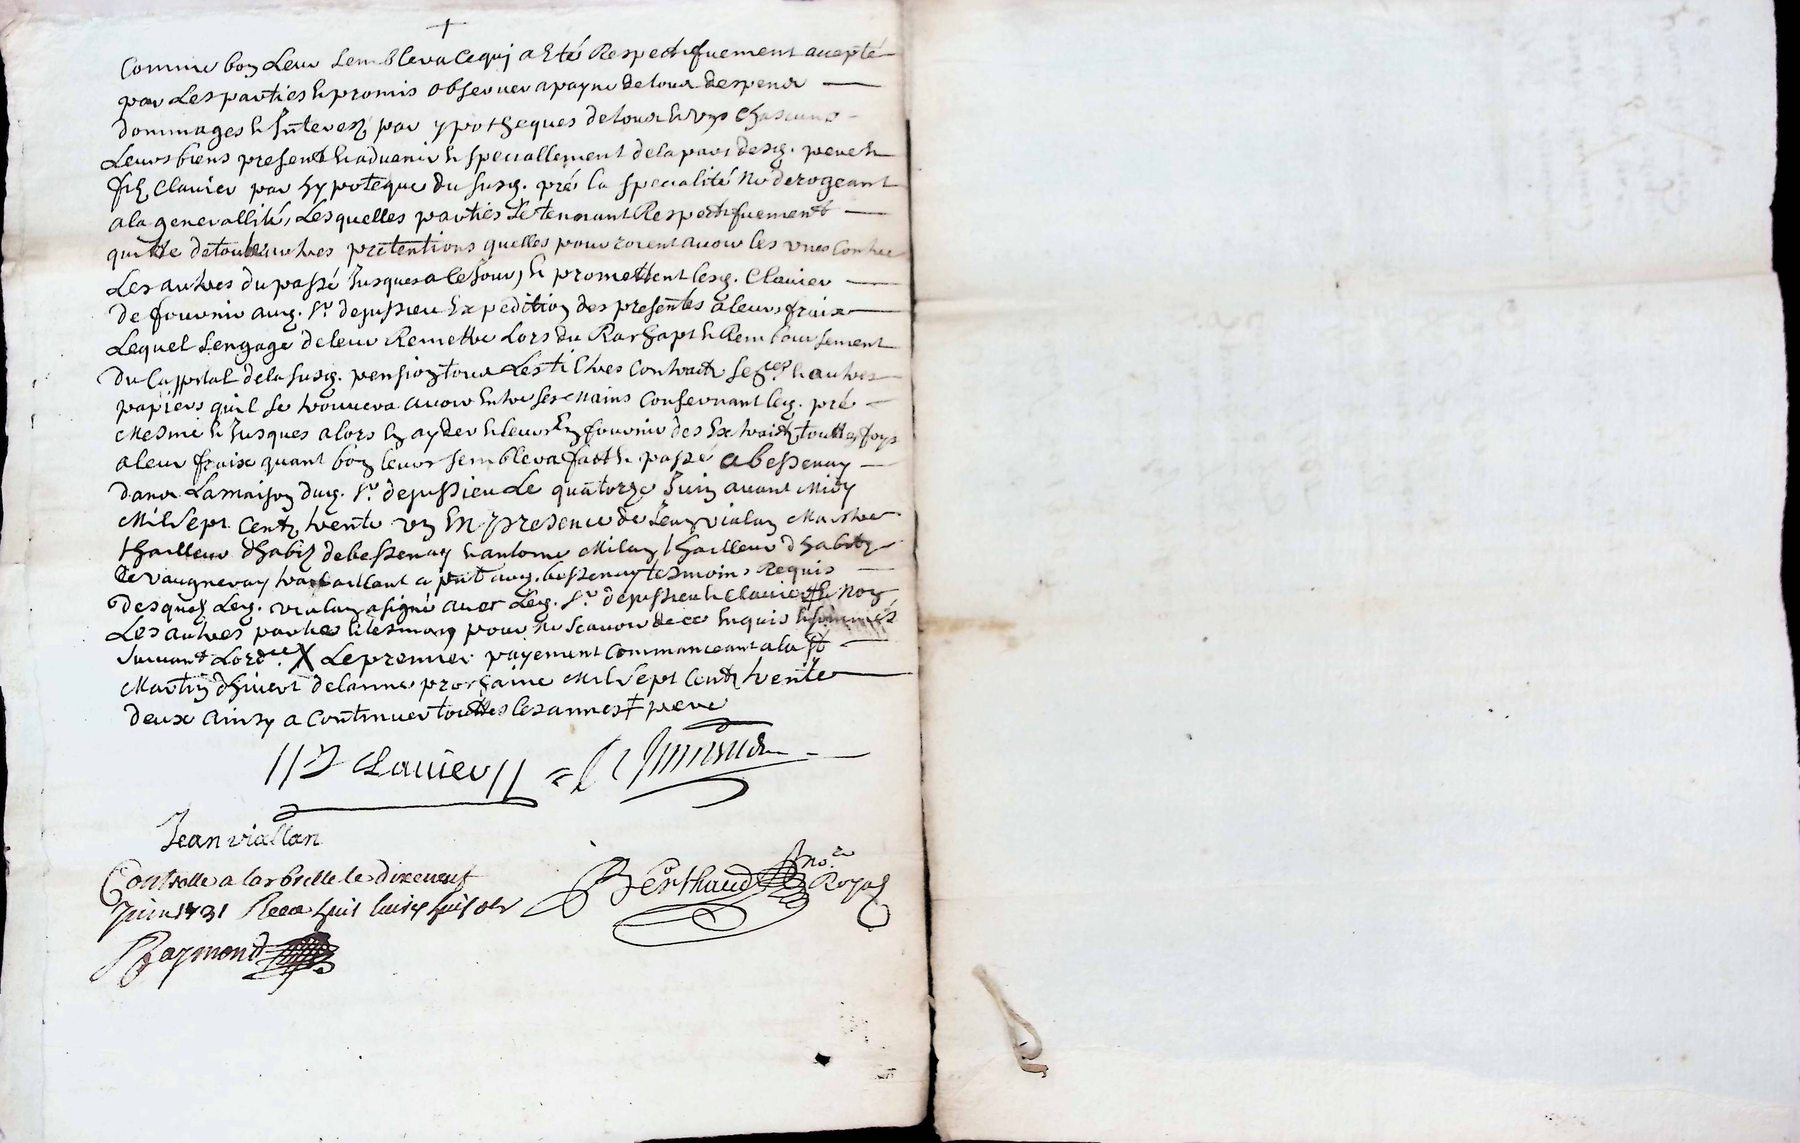 Comme bon Leur semblera Ce qui a Eté Respectifuement accepté
par Les parties & promis observer a payne de tous despens
dommages & Interez par ypotheques de tous & uns Chascuns
Leurs biens presents & aduenir & speciallement de la part desd. pere &
fils Clauier par hypoteque du susd. pré la specialité Ne derogeant
a la generallité, Lesquelles parties se tennant Respectifuement
quitte de touttes autres pretentions quelles pourroient auoir les unes Contre
Les autres du passé Jusques a ce Jour, & promettent lesd. Clauier
de fournir aud. Sr. dejussieu Expedition des presentes a leurs fraix
Lequel s'engage de leur Remettre Lors du Rachapt & Remboursement
du Cappital de la susd. pension tous Les tiltres Contracts & autres
papiers quil se trouuera auoir Entre ses Mains Consernant led. pré
Mesme & Jusques alors En ayder & leur En fournir des Extraits touttes foys
a leur fraix quant bon leurs semblera fait & passé a bessenay
dans La maison dud. Sr. dejussieu Le quatorze Juin auant Midy
Mil Sept Cents trente un En presence de Jean vialan Maistre
thailleur dhabis de bessenay & antoine Milan thailleur dhabits
de vaugneray trauaillant a pnt aud. bessenay tesmoins Requis
desquels led. vialan a signé auec led. Sr. dejussieu & Clauier fils Non
Les autres parties & tesmoin pour ne scauoir de ce Enquis & sommés
suiuant Lordce. X Le premier payement Commanceant a la St
Martin dhiuert de lannee prochaine Mil Sept Cents trente
deux Ainsy a Continuer touttes les annees ‡ pere
Clauier
Jean viallan
Controlle a larbresle le dixneuf
Juin 1731 Receu huit huit sols
Berthaud no.re Royal
Raymond